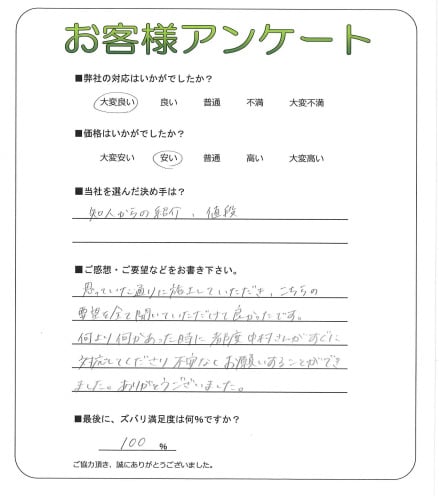 お客様アンケート
■弊社の対応はいかがでしたか？
大変良い 良い 普通 不満 大変不満
■価格はいかがでしたか？
大変安い 安い 普通 高い 大変高い
■当社を選んだ決め手は？
知人からの紹介，値段
■ご感想・ご要望などをお書き下さい。
思っていた通りに施工していただき、こちらの
要望を全て聞いていただけて良かったです。
何より何かあった時に都度中村さんがすぐに
対応してくださり不安なくお願いすることができ
ました。ありがとうございました。
■最後に、ズバリ満足度は何%ですか？
100 %
ご協力頂き、誠にありがとうございました。